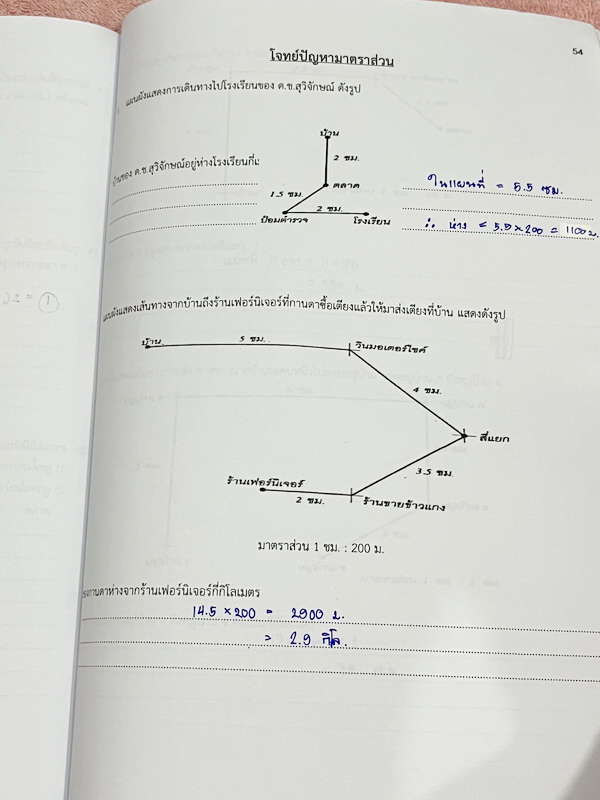 54
โจทย์ปัญหามาตราส่วน
แผนผังแสดงการเดินทางไปโรงเรียนของ ด.ช.สุวิจักษณ์ ดังรูป
บ้าน
2 ซม.
บ้านของ ด.ช.สุวิจักษณ์อยู่ห่างโรงเรียนกี่ม
ตลาด
1.5 ซม.
2 ซม.
ป้อมตำรวจ
โรงเรียน
ในแผนที่ = 5.5 ซม.
∴ ห่าง = 5.5 × 200 = 1100 ม.
แผนผังแสดงเส้นทางจากบ้านถึงร้านเฟอร์นิเจอร์ที่กานดาซื้อเตียงแล้วให้มาส่งเตียงที่บ้าน แสดงดังรูป
บ้าน
5 ซม.
วินมอเตอร์ไซค์
4 ซม.
สี่แยก
3.5 ซม.
ร้านเฟอร์นิเจอร์
2 ซม.
ร้านขายข้าวแกง
มาตราส่วน 1 ซม. : 200 ม.
กานดาห่างจากร้านเฟอร์นิเจอร์กี่กิโลเมตร
14.5 × 200 = 2900 ม.
= 2.9 กิโล.